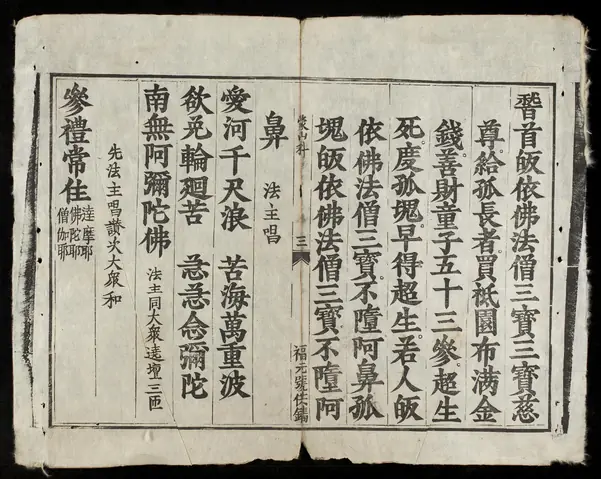 稽首皈依佛法僧三寶三寶慈
尊。給孤長者。買祗園布滿金
錢。善財童子五十三參。超生
死。度孤魂。早得超生。若人皈
依佛法僧三寶。不墮阿鼻孤
魂皈依佛法僧三寶不墮阿
蒙山科
三
福元號住鐫
鼻 法主唱
愛河千尺浪 苦海萬重波
欲免輪廻苦 急急念彌陀
南無阿彌陀佛 法主同大衆遶壇三匝
先法主唱讚次大衆和
參禮常住
達摩耶
佛陀耶
僧伽耶